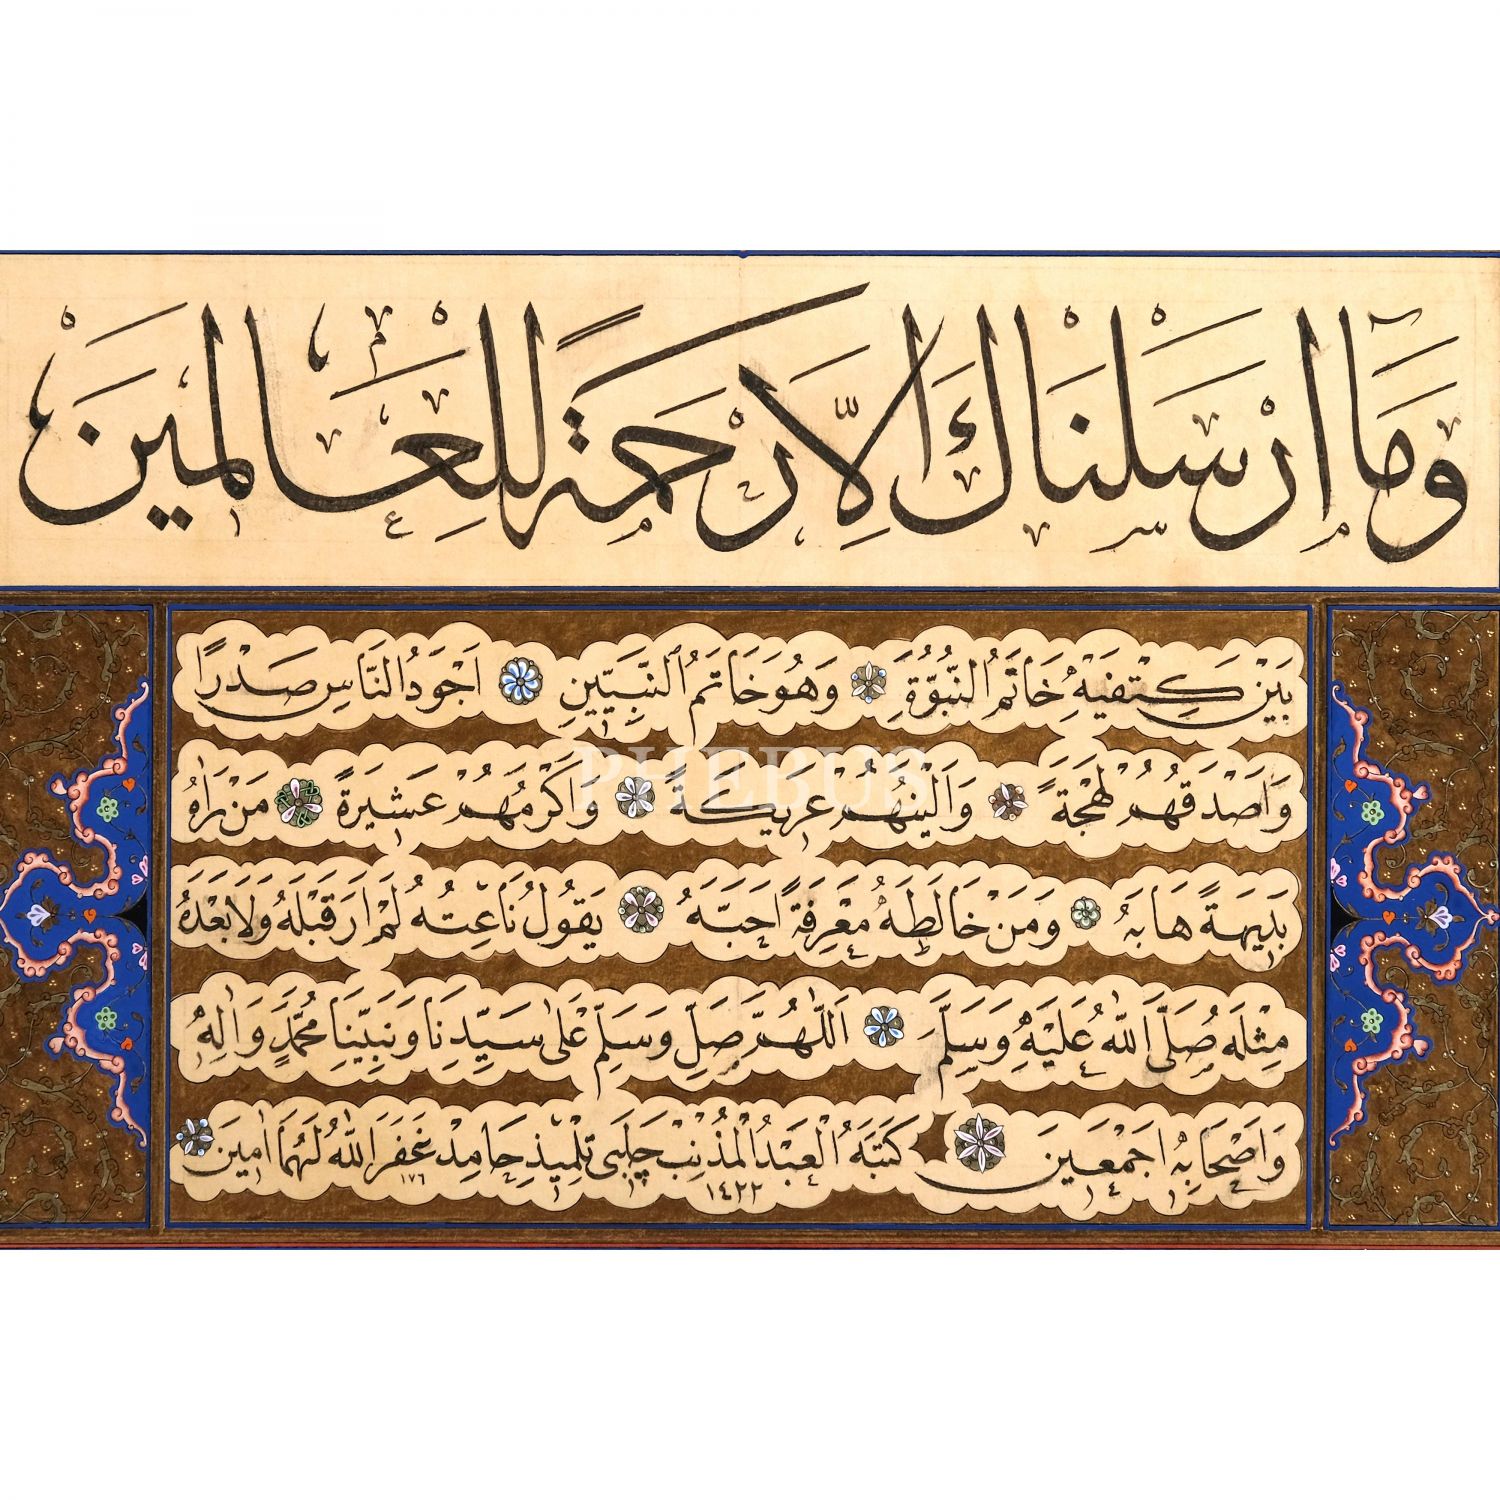 وَمَآ اَرْسَلْنَاكَ اِلَّا رَحْمَةً لِلْعَالَمِينَ
بَيْنَ كَتِفَيْهِ خَاتَمُ النُّبُوَّةِ وَهُوَ خَاتَمُ النَّبِيِّينَ اَجْوَدُ النَّاسِ صَدْرًا
وَاَصْدَقُهُمْ لَهْجَةً وَاَلْيَنُهُمْ عَرِيكَةً وَاَكْرَمُهُمْ عَشِيرَةً مَنْ رَاٰهُ
PHEBUS
بَدِيهَةً هَابَهُ وَمَنْ خَالَطَهُ مَعْرِفَةً اَحَبَّهُ يَقُولُ نَاعِتُهُ لَمْ اَرَ قَبْلَهُ وَلَا بَعْدَهُ
مِثْلَهُ صَلَّى اللّٰهُ عَلَيْهِ وَسَلَّمَ اَللّٰهُمَّ صَلِّ وَسَلِّمْ عَلٰى سَيِّدِنَا وَنَبِيِّنَا مُحَمَّدٍ وَاٰلِهِ
وَاَصْحَابِهِ اَجْمَعِينَ كَتَبَهُ الْعَبْدُ الْمُذْنِبُ چَلَبِي تِلْمِيذِ حَامِدْ غَفَرَ اللّٰهُ لَهُمَا اٰمِينَ
١٤٢٢ ١٧٦